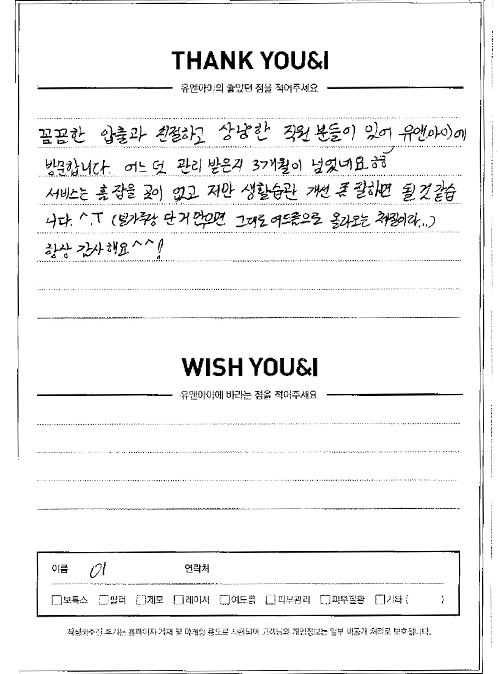 THANK YOU&I
유앤아이의 좋았던 점을 적어주세요
꼼꼼한 압출과 친절하고 상냥한 직원분들이 있어 유앤아이에
방문합니다. 어느덧 관리 받은지 3개월이 넘었네요 ㅎㅎ
서비스는 흠 잡을 곳이 없고 저만 생활습관 개선 잘하면 될 것 같습
니다. ^.T (밀가루랑 단 거 먹으면 그대로 여드름으로 올라오는 체질이라...)
항상 감사해요^^!
WISH YOU&I
유앤아이에 바라는 점을 적어주세요
이름 이 연락처
보톡스 필러 제모 레이저 여드름 피부관리 피부질환 기타 ( )
작성해주신 후기는 홈페이지 게재 및 마케팅 용도로 사용되며 고객님의 개인정보는 일부 비공개 처리로 보호됩니다.